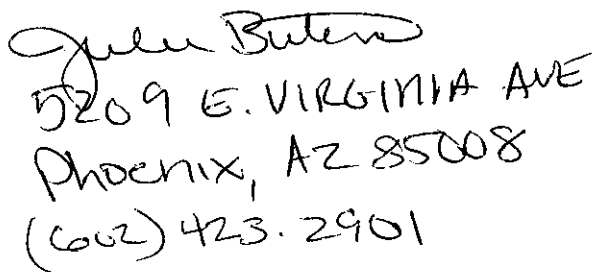 Julie Butera
5209 E. VIRGINIA AVE
Phoenix, AZ 85008
(602) 423.2901